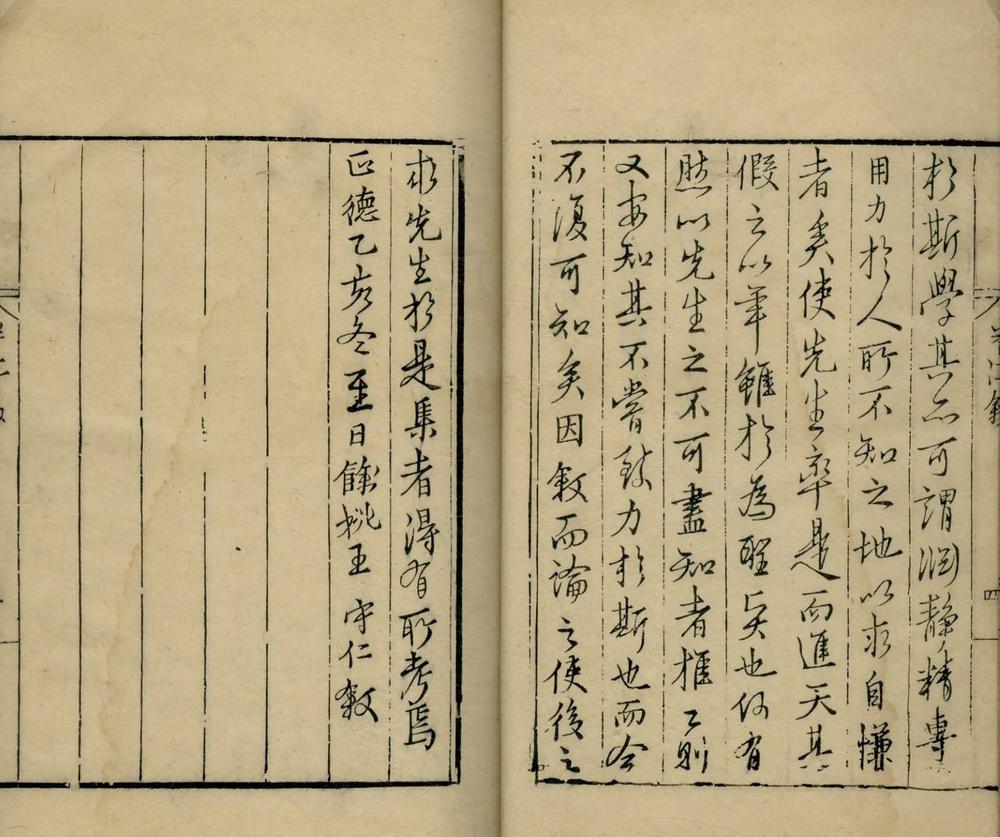 於斯學其亦可謂淵靜精專
用力於人所不知之地以求自慊
者矣使先生率是而進天其
假之以年雖於為聖奚也何有
然以先生之不可盡知者推之則
又安知其不嘗致力於斯也而今
不復可知矣因敘而論之使後之
求先生於是集者得有所考焉
正德乙亥冬至日餘姚王守仁敘
四